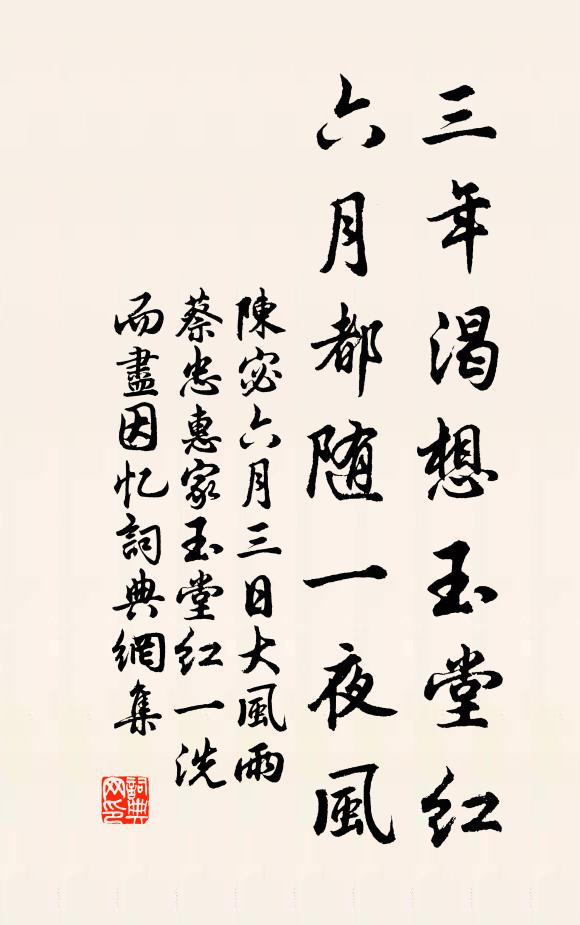 三年渴想玉堂红
六月都随一夜風
陳宓六月三日大風雨
蔡忠惠家玉堂红一洗
而盡因忆詞典網集
詞典
网印